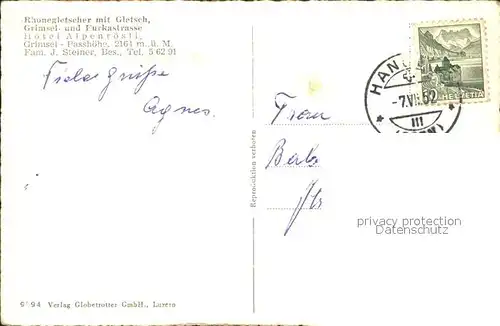 Rhonegletscher mit Gletsch,
Grimsel- und Furkastrasse
Hôtel Alpenrösli,
Grimsel - Passhöhe, 2161 m. ü. M.
Fam. J. Steiner, Bes., Tel. 5 62 91
Viele Grüsse
Agnes.
HAN
-7.VII.52
III
HELVETIA
Frau
Reproduktion verboten
privacy protection
Datenschutz
9194 Verlag Globetrotter GmbH., Luzern